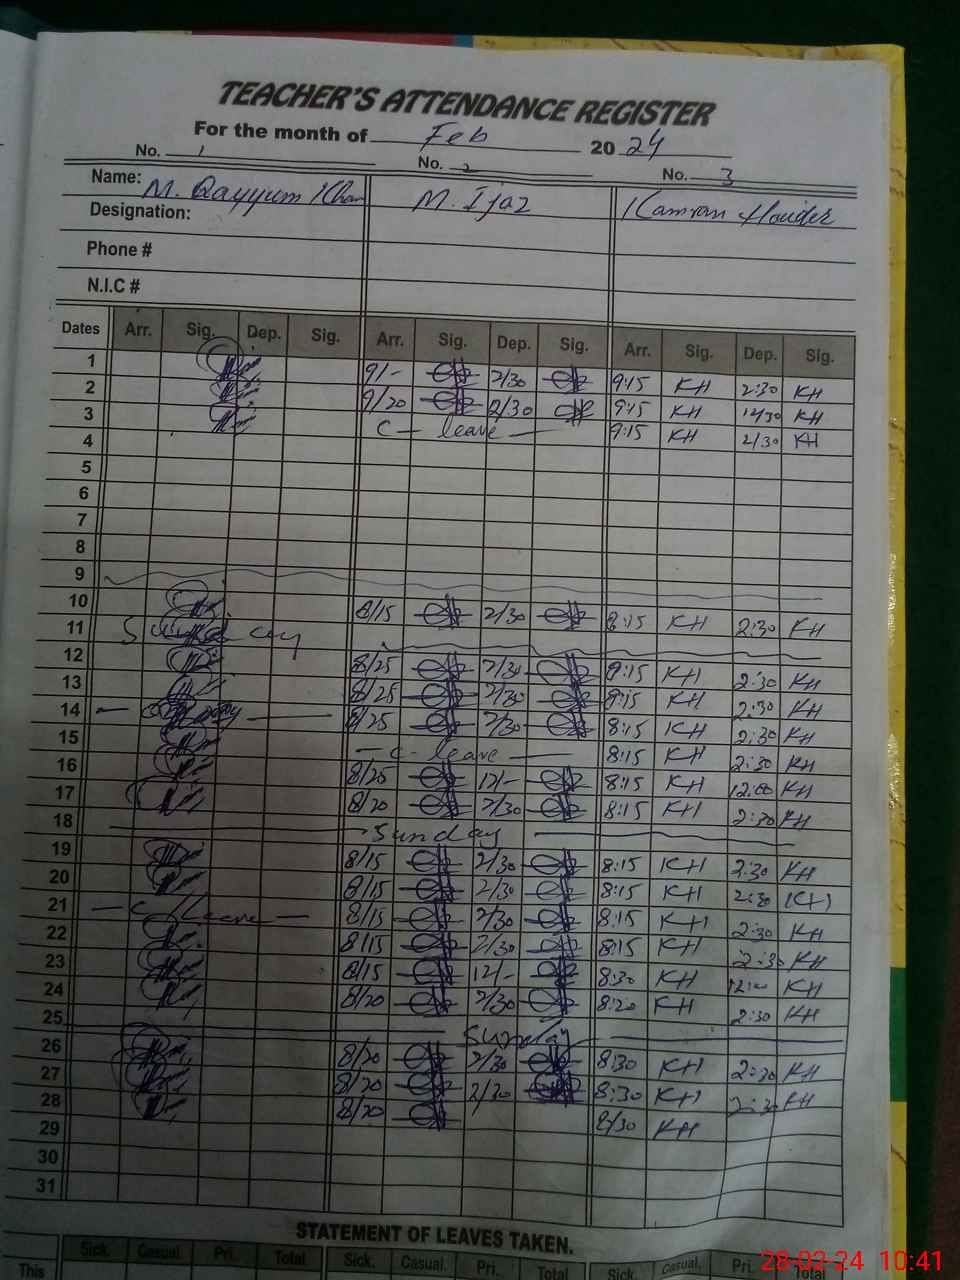 TEACHER'S ATTENDANCE REGISTER
For the month of Feb 2024
No. 1 No. 2 No. 3
Name: M. Qayyum Khan M. Ijaz Kamran Haider
Designation:
Phone #
N.I.C #
Dates Arr. Sig. Dep. Sig. Arr. Sig. Dep. Sig. Arr. Sig. Dep. Sig.
1 9/- 2/30 9:15 KH 2:30 KH
2 9/20 12/30 9:15 KH 12/30 KH
3 C - leave - 9:15 KH 2/30 KH
4
5
6
7
8
9
10 8/15 2/30 8:15 KH 2:30 KH
11
12 8/25 2/30 8:15 KH 2:30 KH
13 8/25 2/30 8:15 KH 2:30 KH
14 8/25 2/30 8:15 KH 2:30 KH
15 - C - leave - 8:15 KH 2:30 KH
16 8/25 12/- 8:15 KH 12:00 KH
17 8/20 2/30 8:15 KH 2:30 KH
18 Sunday
19 8/15 2/30 8:15 KH 2:30 KH
20 8/15 2/30 8:15 KH 2:30 KH
21 - C leave - 8/15 2/30 8:15 KH 2:30 KH
22 8/15 2/30 8:15 KH 2:30 KH
23 8/15 12/- 8:30 KH 12:00 KH
24 8/20 2/30 8:20 KH 2:30 KH
25 Sunday
26 8/20 2/30 8:30 KH 2:30 KH
27 8/20 2/30 8:30 KH 2:30 KH
28 8/20 8/30 KH
29
30
31
STATEMENT OF LEAVES TAKEN.
Sick. Casual. Pri. Total Sick. Casual. Pri. Total Sick. Casual. Pri. Total
This
28-02-24 10:41